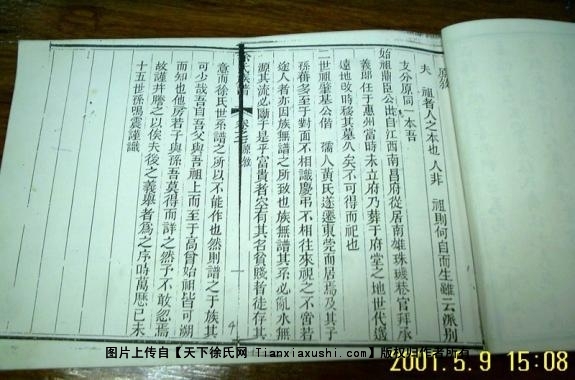 原敘
夫 祖者人之本也人非 祖則何自而生雖云派別
支分原同一本吾
始祖鼎臣公出自江西南昌府從居南雄珠璣巷官拜承
義郎任于惠州當時未立府乃葬于府堂之地世代遼
遠地改時移其墓久矣不可得而祀也
二世祖肇基公偕 孺人黃氏遂遷東莞而居焉及其子
孫蕃多至于對面不相識慶弔不相往來視之不啻若
途人者亦因族無譜之所致也族無譜其系必亂水無
源其流必斷于是乎富貴者空有其名貧賤者徒存其
徐氏族譜 卷之 原敘
意而徐氏世譜之所以不能作也然則譜之于族其
可少哉吾自吾父與吾祖上而至于高曾始祖皆可溯
而知也他房若子與孫吾莫得而詳之然予不敢忽焉
故謹并謄之以俟夫後之義舉者為之序時萬歷已未
十五世孫鳴震謹識
4
图片上传自【天下徐氏网（Tianxiaxushi.com）】版权归作者所有
2001.5.9 15:08